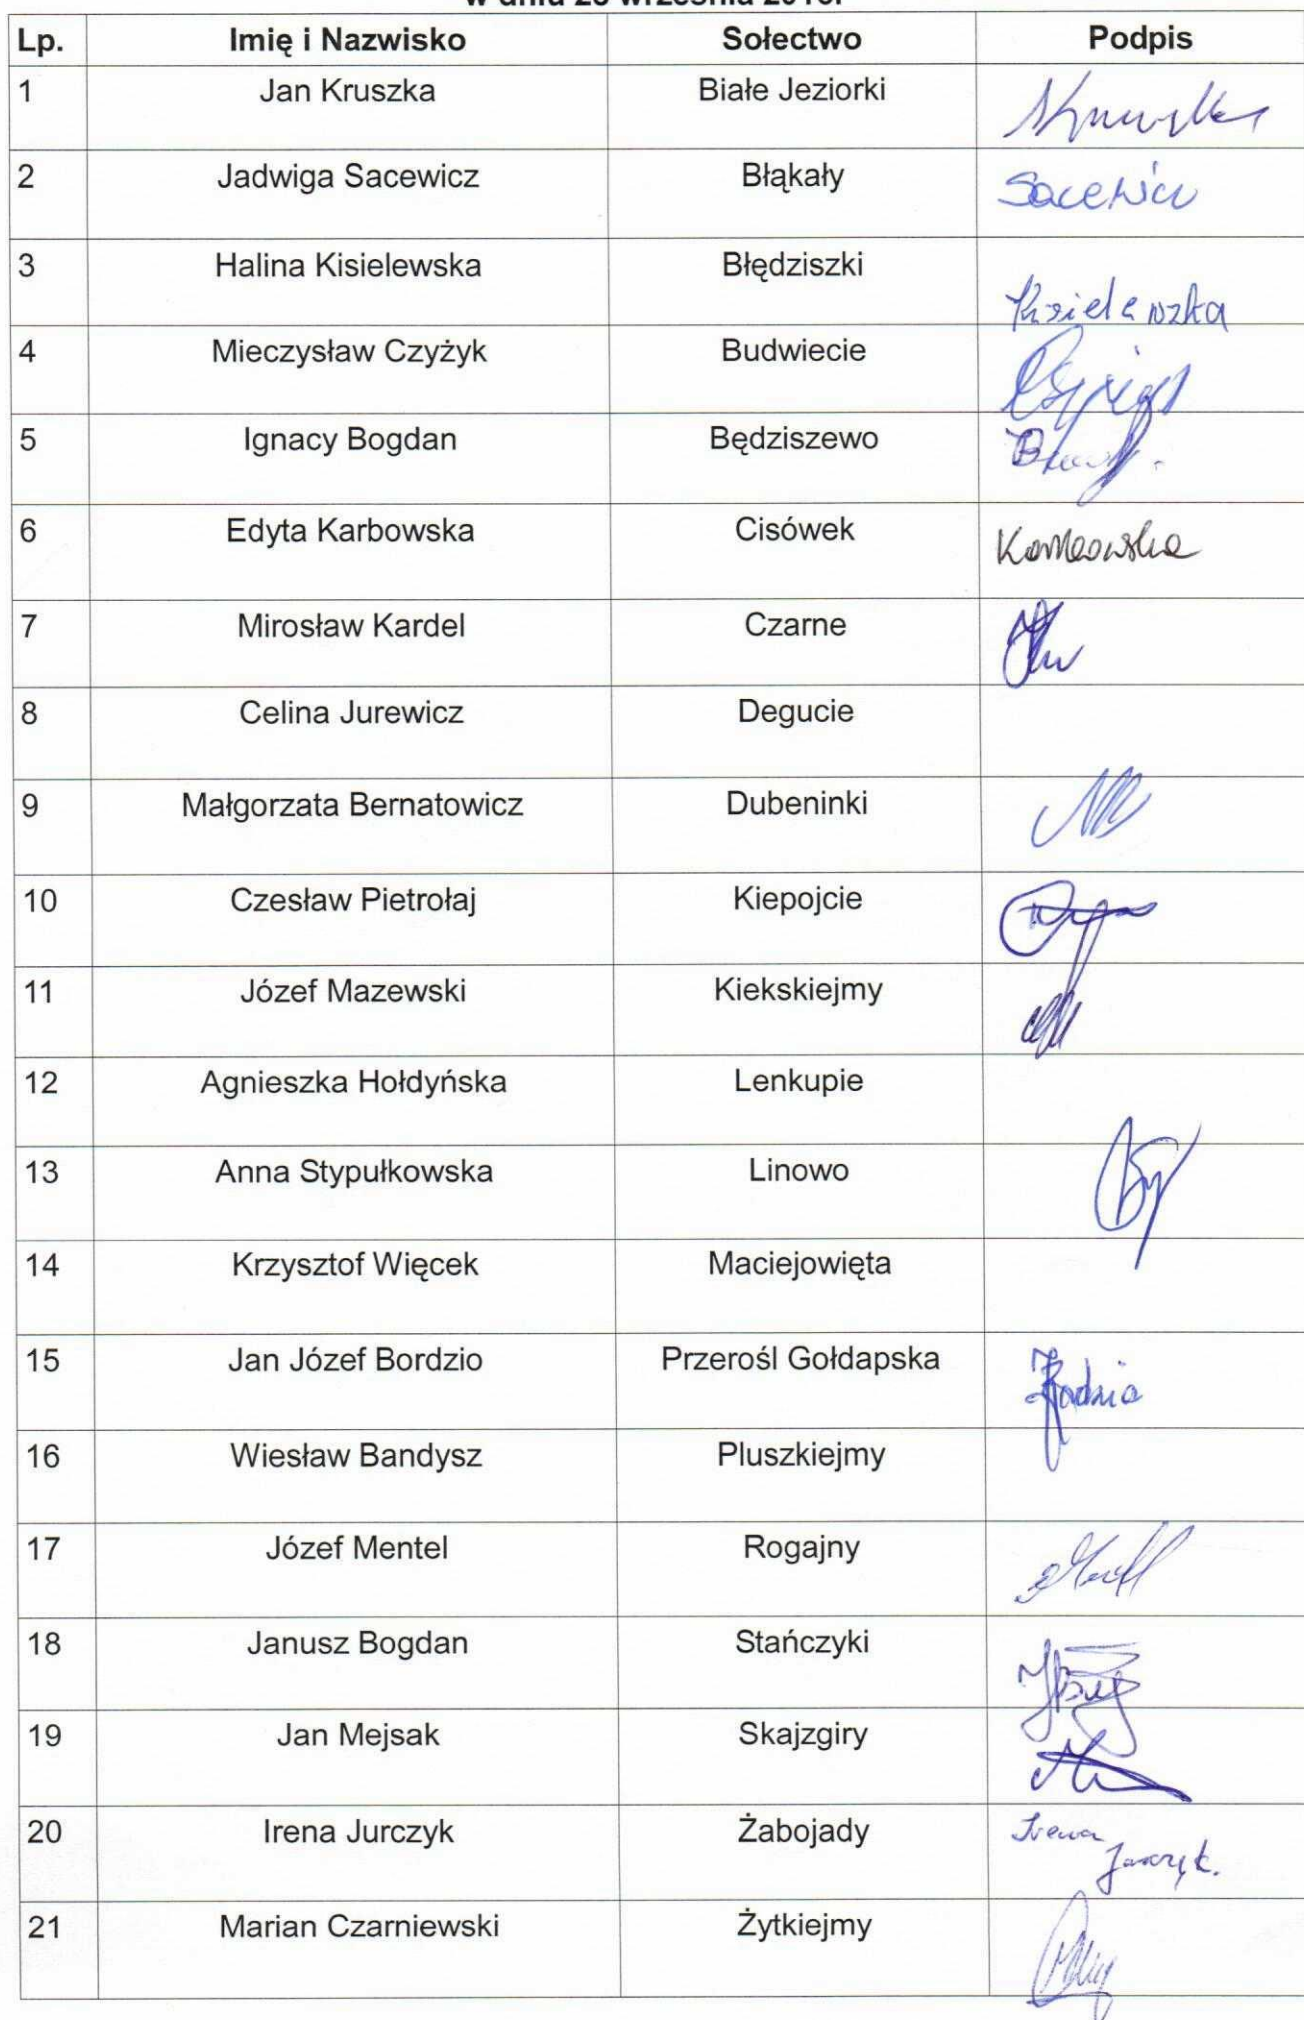 Lp. Imię i Nazwisko Sołectwo Podpis
1 Jan Kruszka Białe Jeziorki
2 Jadwiga Sacewicz Błąkały Sacewicz
3 Halina Kisielewska Błędziszki Kisielewska
4 Mieczysław Czyżyk Budwiecie
5 Ignacy Bogdan Będziszewo
6 Edyta Karbowska Cisówek Karbowska
7 Mirosław Kardel Czarne
8 Celina Jurewicz Degucie
9 Małgorzata Bernatowicz Dubeninki
10 Czesław Pietrołaj Kiepojcie
11 Józef Mazewski Kiekskiejmy
12 Agnieszka Hołdyńska Lenkupie
13 Anna Stypułkowska Linowo
14 Krzysztof Więcek Maciejowięta
15 Jan Józef Bordzio Przerośl Gołdapska
16 Wiesław Bandysz Pluszkiejmy
17 Józef Mentel Rogajny
18 Janusz Bogdan Stańczyki
19 Jan Mejsak Skajzgiry
20 Irena Jurczyk Żabojady Irena
Jurczyk.
21 Marian Czarniewski Żytkiejmy